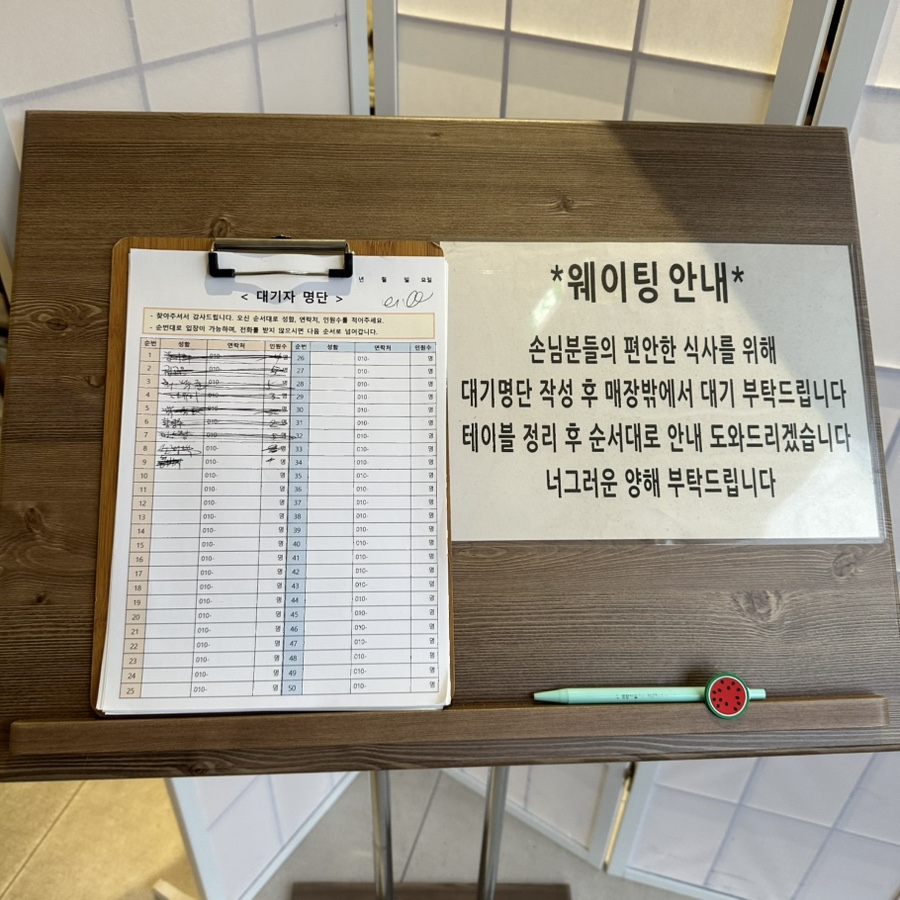 년 월 일 요일
< 대기자 명단 >
- 찾아주셔서 감사드립니다. 오신 순서대로 성함, 연락처, 인원수를 적어주세요.
- 순번대로 입장이 가능하며, 전화를 받지 않으시면 다음 순서로 넘어갑니다.
순번 성함 연락처 인원수 순번 성함 연락처 인원수
1 010- 명 26 010- 명
2 명 27 010- 명
3 명 28 010- 명
4 명 29 010- 명
5 명 30 010- 명
6 010- 명 31 010- 명
7 010- 명 32 010- 명
8 010- 명 33 010- 명
9 010- 명 34 010- 명
10 010- 명 35 010- 명
11 010- 명 36 010- 명
12 010- 명 37 010- 명
13 010- 명 38 010- 명
14 010- 명 39 010- 명
15 010- 명 40 010- 명
16 010- 명 41 010- 명
17 010- 명 42 010- 명
18 010- 명 43 010- 명
19 010- 명 44 010- 명
20 010- 명 45 010- 명
21 010- 명 46 010- 명
22 010- 명 47 010- 명
23 010- 명 48 010- 명
24 010- 명 49 010- 명
25 010- 명 50 010- 명
*웨이팅 안내*
손님분들의 편안한 식사를 위해
대기명단 작성 후 매장밖에서 대기 부탁드립니다
테이블 정리 후 순서대로 안내 도와드리겠습니다
너그러운 양해 부탁드립니다